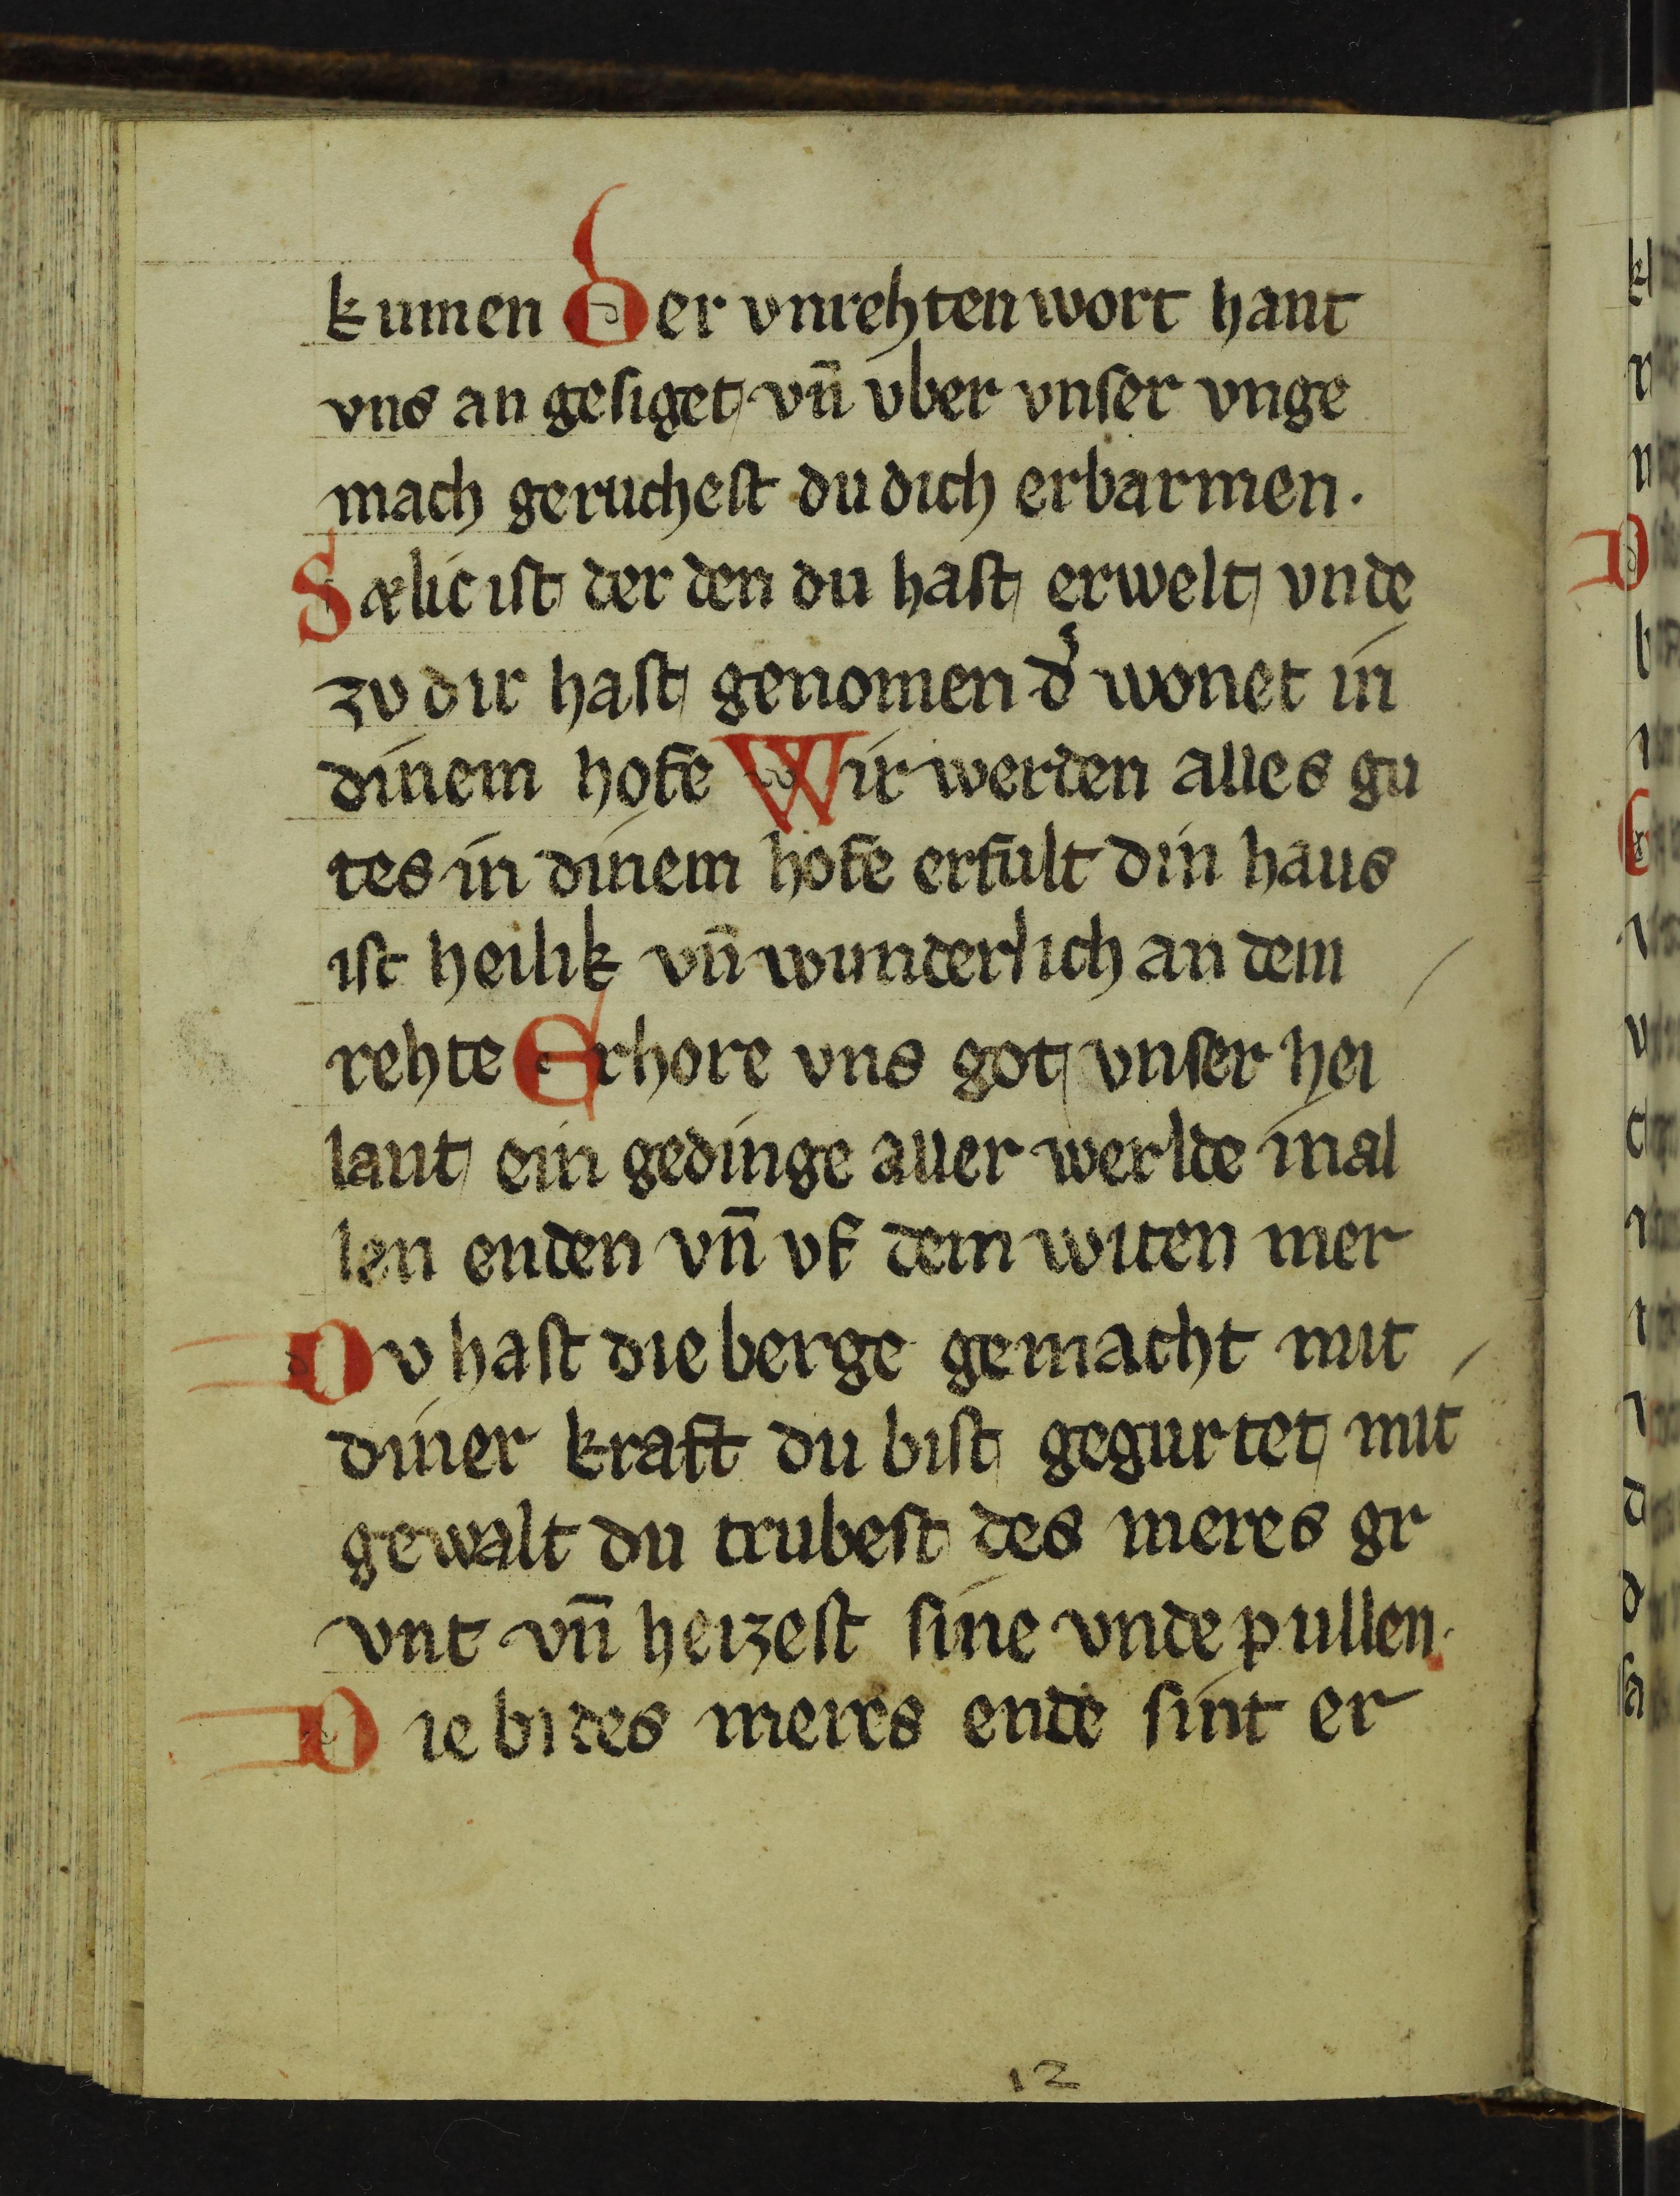 kumen Der vnrehten wort hant
vns an gesiget vn̄ vber vnser vnge
mach geruchest du dich erbarmen.
Sælic ist der den du hast erwelt vnde
zv dir hast genomen d͛ wonet in
dinem hofe Wir werden alles gu
tes in dinem hofe erfult din haus
ist heilik vn̄ wunderlich an dem
rehte Erhore vns got vnser hei
lant ein gedinge aller werlde in al
len enden vn̄ vf dem witen mer
Dv hast die berge gemacht mit
diner kraft du bist gegurtet mit
gewalt du trubest des meres gr
vnt vn̄ heizest sine vnde pullen.
Die bi des meres ende sint er
12